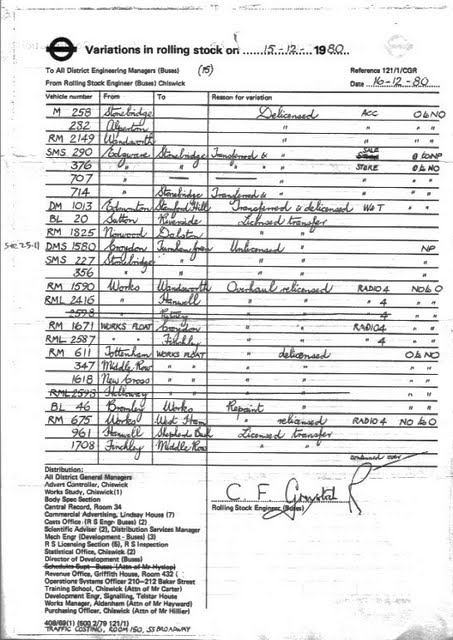 Variations in rolling stock on 15-12- 1980
To All District Engineering Managers (Buses) (15) Reference 121/1/CGR
From Rolling Stock Engineer (Buses) Chiswick Date 16-12-80
Vehicle number From To Reason for variation
M 258 Stonebridge Delicensed ACC O to NO
282 Alperton " " "
RM 2149 Wandsworth " " "
SMS 290 Edgware Stonebridge Transferred & " SALE O to NP
376 " " " " STORE O to NO
707 " — — " " "
714 " Stonebridge Transferred & " " "
DM 1013 Edmonton Stamford Hill Transferred & delicensed W&T " "
BL 20 Sutton Riverside Licensed transfer
RM 1825 Norwood Dalston "
see 25-11 DMS 1580 Croydon Fulwell Unlicensed " NP
SMS 227 Stonebridge " " " "
356 " " " " "
RM 1590 Works Wandsworth Overhaul relicensed RADIO 4 N to O
RML 2416 " Hanwell " " " 4 "
2598 " Putney " " 4 "
RM 1671 WORKS FLOAT Croydon " " RADIO 4 "
RML 2587 " " Finchley " " " 4 "
RM 611 Tottenham WORKS FLOAT " delicensed O to NO
347 Middle Row " " " " "
1618 New Cross " " " " "
RML 2593 Holloway " " " " "
BL 46 Bromley Works Repaint " " "
RM 675 Works West Ham " relicensed RADIO 4 NO to O
961 Hanwell Shepherds Bush Licensed transfer
1708 Finchley Middle Row " "
continued over
Distribution:
All District General Managers
Advert Controller, Chiswick
Works Study, Chiswick (1)
Body Spec Section
Central Record, Room 34
Commercial Advertising, Lindsay House (7)
Costs Office (R S Engr- Buses) (2)
Scientific Adviser (2), Distribution Services Manager
Mech Engr (Development - Buses) (3)
R S Licensing Section (5), R S Inspection
Statistical Office, Chiswick (2)
Director of Development (Buses)
Schedules Supt - Buses (Attn of Mr Hyslop)
Revenue Office, Griffith House, Room 432 (
Operations Systems Officer 210-212 Baker Street
Training School, Chiswick (Attn of Mr Carter)
Development Engr, Signalling, Telstar House
Works Manager, Aldenham (Attn of Mr Hayward)
Purchasing Officer, Chiswick (Attn of Mr Hillier)
C. F.
Rolling Stock Engineer (Buses)
408/69(1) (500 2/79 121/1)
TRAFFIC COSTING, ROOM 150, 55 BROADWAY